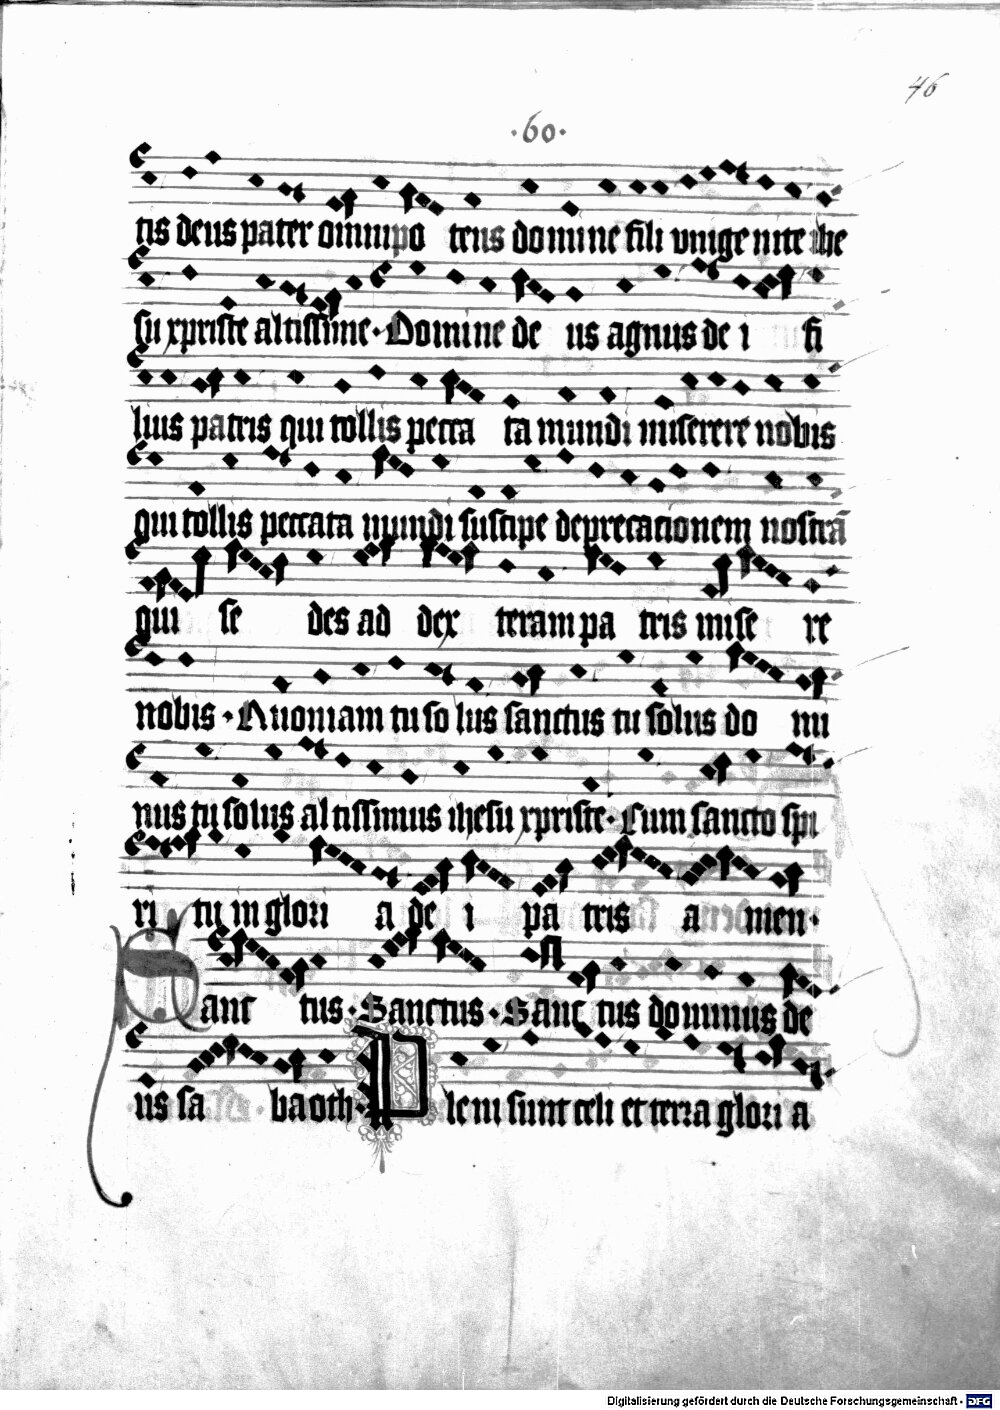 46
·60·
tis deus pater omnipo tens domine fili vnige nite ihe
su xpriste altissime· Domine de us agnus de i fi
lius patris qui tollis pecca ta mundi miserere nobis
qui tollis peccata mundi suscipe deprecationem nostrā
qui se des ad dex teram pa tris mise re
nobis · Quoniam tu so lus sanctus tu solus do mi
nus tu solus al tissimus ihesu xpriste· Cum sancto spi
ri tu in glori a de i pa tris a men·
Sanc tus · Sanctus · Sanc tus dominus de
us sa baoth· Pleni sunt celi et terra glori a
Digitalisierung gefördert durch die Deutsche Forschungsgemeinschaft - DFG